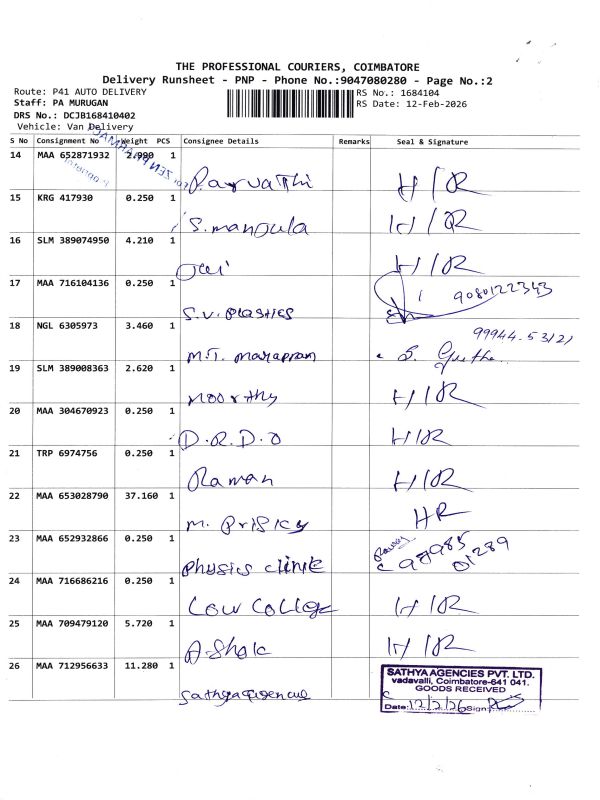 THE PROFESSIONAL COURIERS, COIMBATORE
Delivery Runsheet - PNP - Phone No.:9047080280 - Page No.:2
Route: P41 AUTO DELIVERY
Staff: PA MURUGAN
DRS No.: DCJB168410402
Vehicle: Van Delivery
RS No.: 1684104
RS Date: 12-Feb-2026
S No Consignment No Weight PCS Consignee Details Remarks Seal & Signature
14 MAA 652871932 2.990 1
Parvathi H/R
15 KRG 417930 0.250 1
S. manjula H/R
16 SLM 389074950 4.210 1
H/R
17 MAA 716104136 0.250 1
9080122343
S.V. Plastics
18 NGL 6305973 3.460 1
99944 53121
M.T. S. Geetha
19 SLM 389008363 2.620 1
Moorthy H/R
20 MAA 304670923 0.250 1
D.R.D.O H/R
21 TRP 6974756 0.250 1
Raman H/R
22 MAA 653028790 37.160 1
M. HR
23 MAA 652932866 0.250 1
Physics clinic 98985 01289
24 MAA 716686216 0.250 1
Law College H/R
25 MAA 709479120 5.720 1
A-Shok H/R
26 MAA 712956633 11.280 1
SATHYA AGENCIES PVT. LTD.
vadavalli, Coimbatore-641 041.
GOODS RECEIVED
Date: 12/2/26 Sign